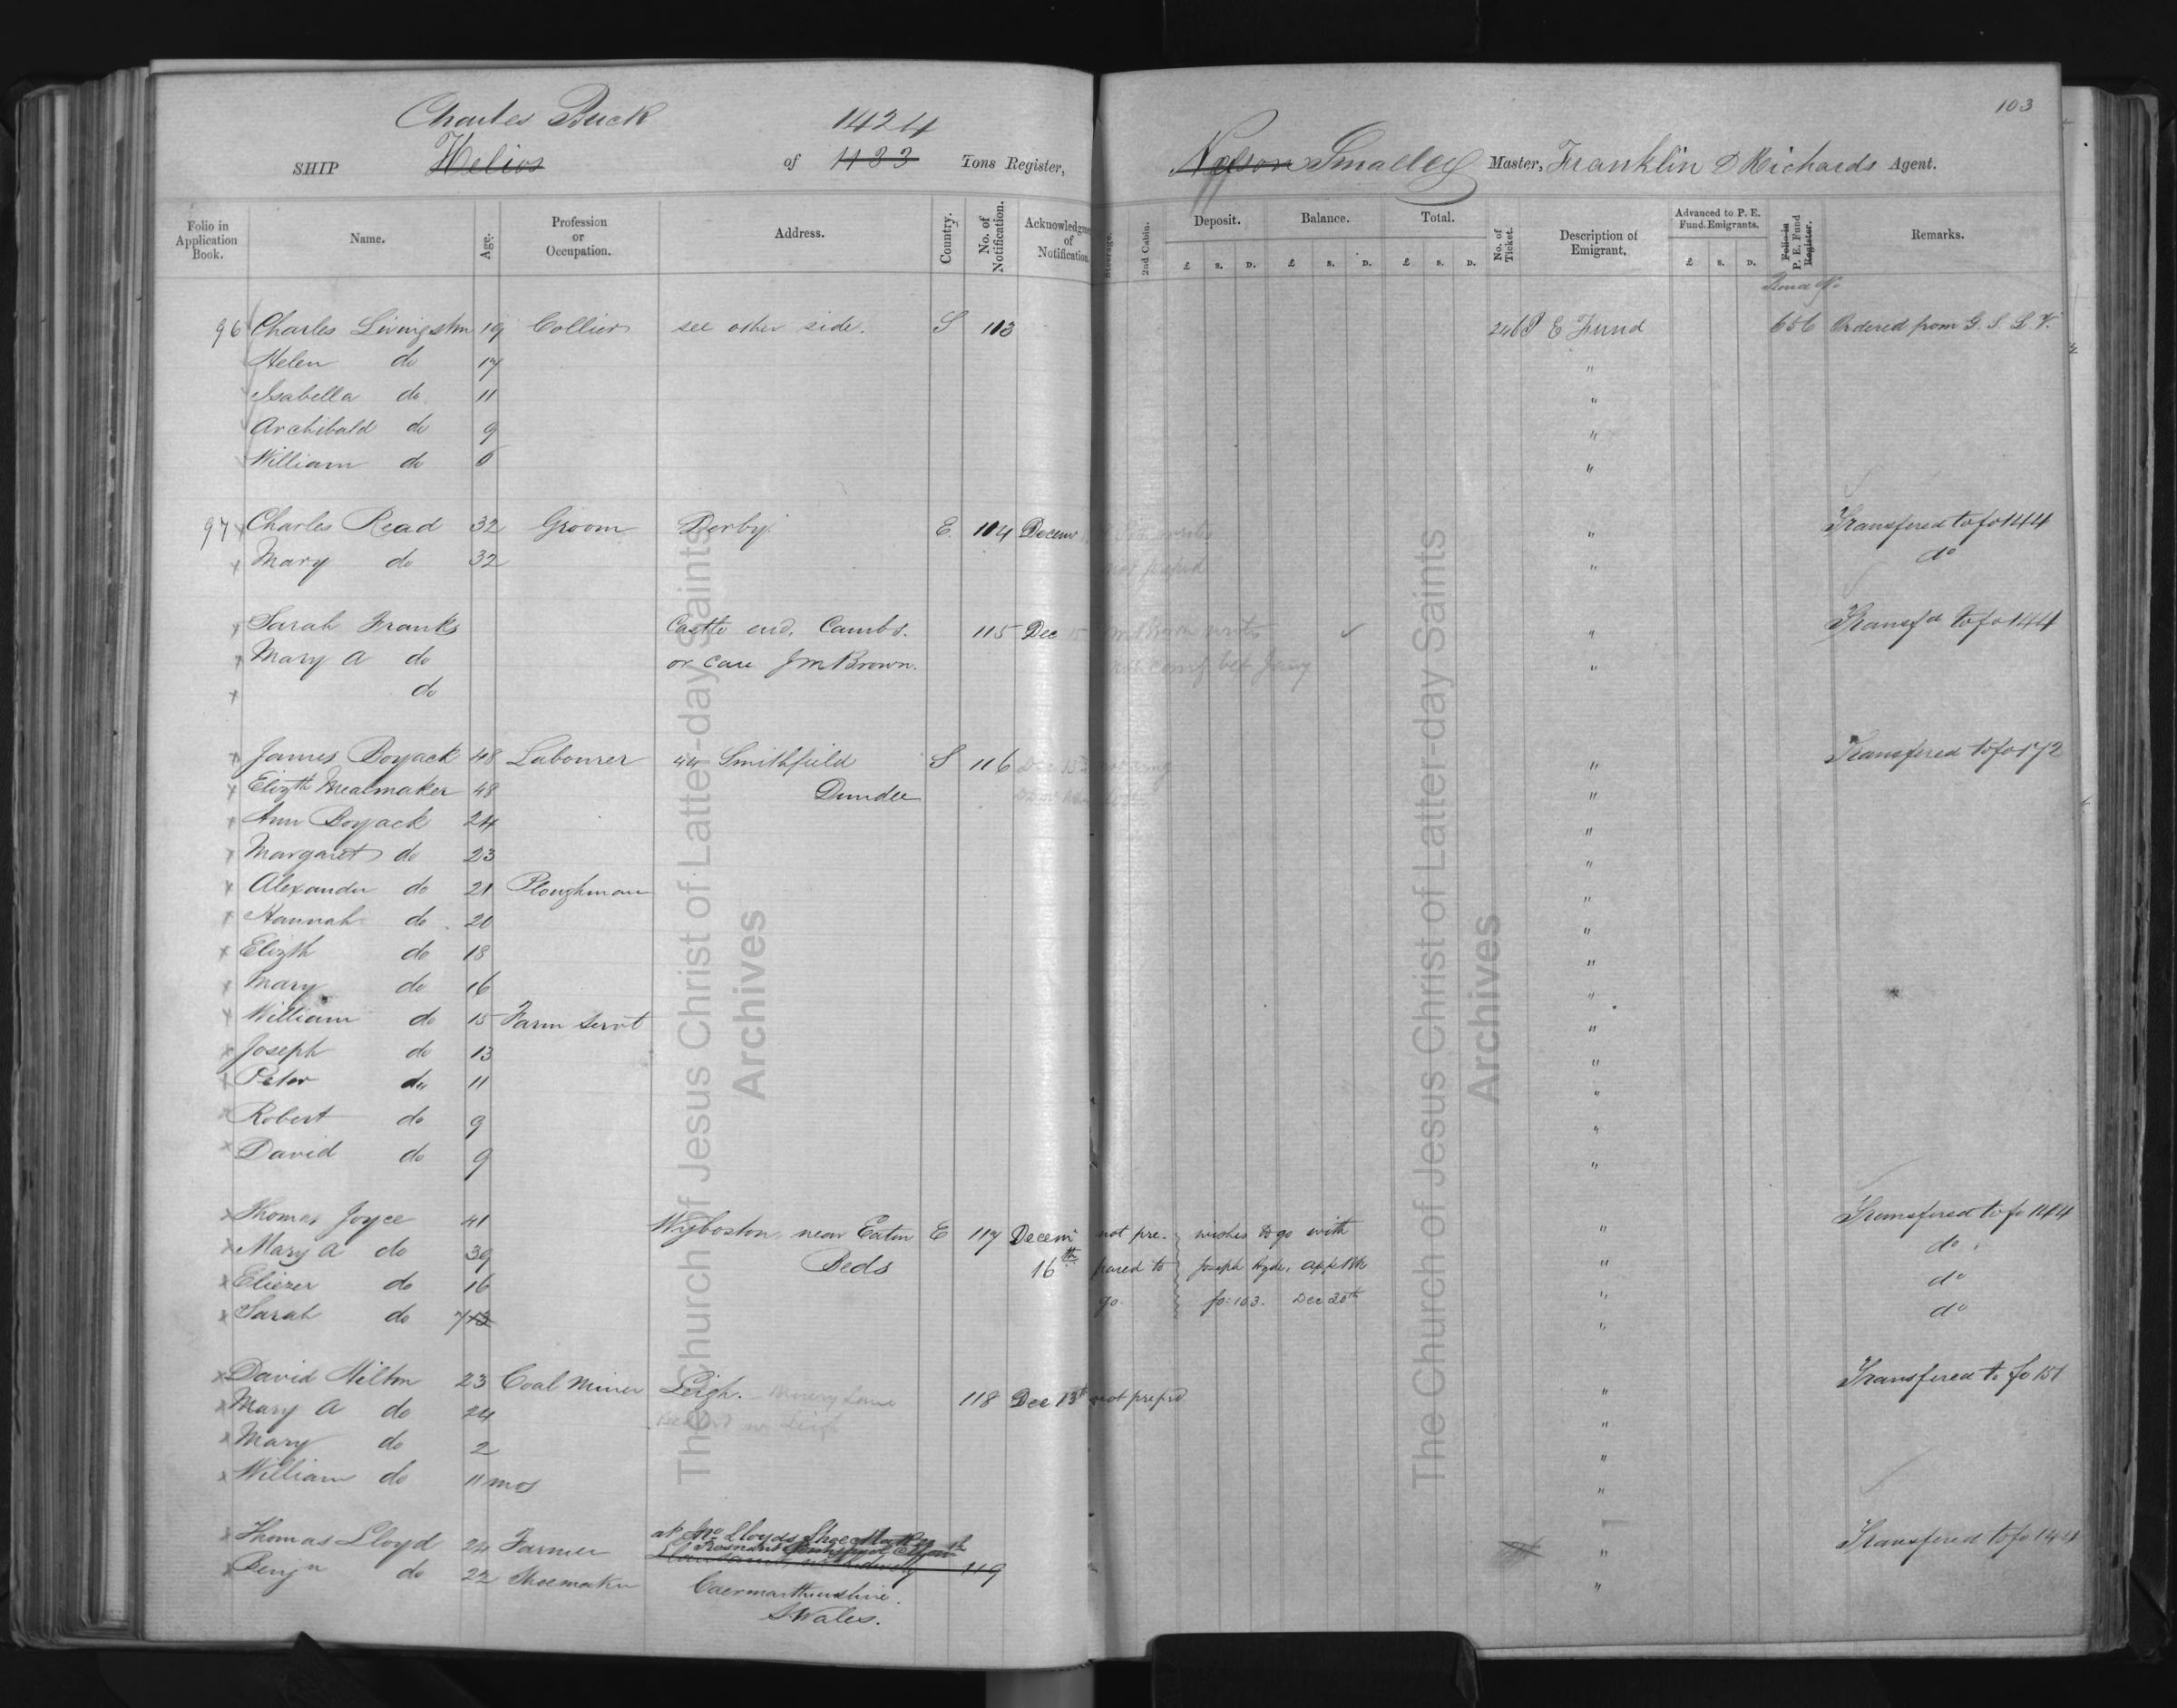 103
Charles Buck 1424
SHIP Helios of 1133 Tons Register, Nelson Smalley Master, Franklin D Richards Agent.
Folio in Application Book. Name. Age. Profession or Occupation. Address. Country. No. of Notification. Acknowledgme of Notification. Steerage. 2nd Cabin. Deposit. £ S. D. Balance. £ S. D. Total. £ S. D. No. of Ticket. Description of Emigrant. Advanced to P. E. Fund Emigrants. £ S. D. Folio in P. E. Fund Register. Remarks.
96 Charles Livingston 19 Collier see other side. S 113 246 P E Fund 656 Ordered from G. S. L. V.
Helen do 17 "
Isabella do 11 "
Archibald do 9 "
William do 6 "
97 Charles Read 32 Groom Derby. E. 114 Decem " Transfered to fo 144
Mary do 32 not prepd " do
Sarah Franks Castle end, Cambs. 115 Dec 15 " Transfd to fo 144
Mary A do or care J M Brown. "
do
James Boyack 48 Labourer 44 Smithfield S 116 " Transfered to fo 172
Elizth Mealmaker 48 Dundee "
Ann Boyack 24 "
Margaret do 23 "
Alexander do 21 Ploughman "
Hannah do 20 "
Elizth do 18 "
Mary do 16 "
William do 15 Farm Servt "
Joseph do 13 "
Peter do 11 "
Robert do 9 "
David do 9 "
Thomas Joyce 41 Wyboston, near Eaton E 117 Decem not pre- wishes to go with " Transfered to fo 144
Mary A do 39 Beds 16th pared to Joseph Hyde, " do
Eliezer do 16 go. fo: 103. Dec 20th " do
Sarah do 7 13 " do
David Hilton 23 Coal Miner Leigh. 118 Dec 13th not prepd " Transfered to fo 151
Mary A do 24 "
Mary do 2 "
William do 11 mos "
Thomas Lloyd 24 Farmer at Lloyds Shoe Maker 119 " Transfered to fo 144
Benjn do 22 Shoemaker Caermarthenshire. "
S. Wales.
The Church of Jesus Christ of Latter-day Saints
Archives
The Church of Jesus Christ of Latter-day Saints
Archives